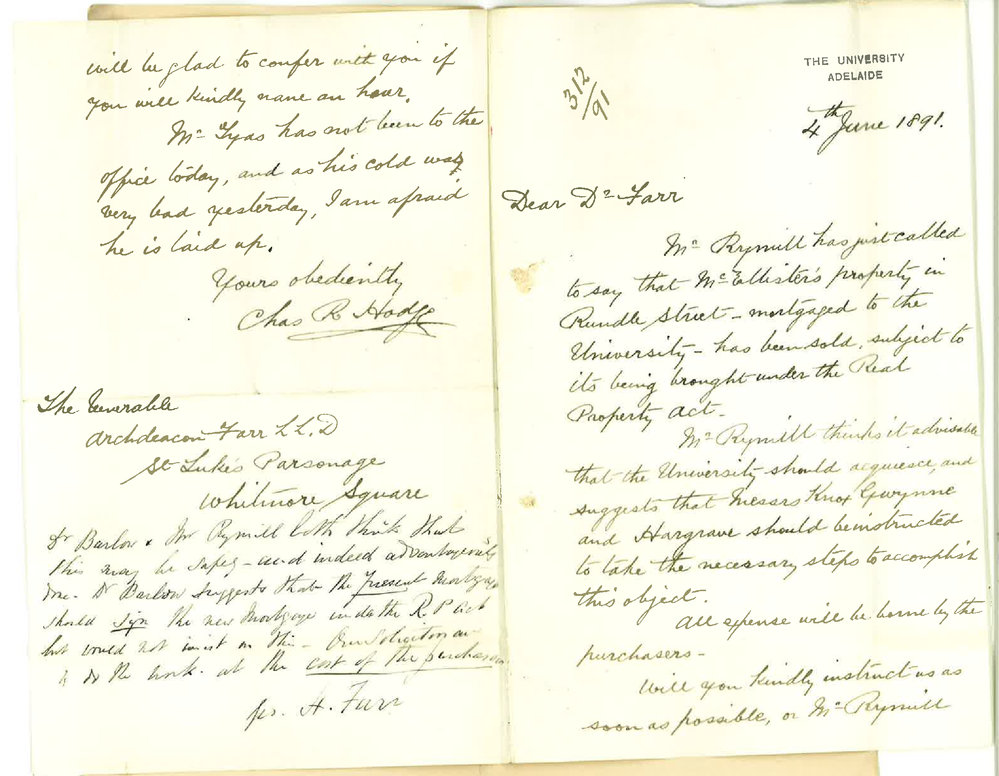 312/91
THE UNIVERSITY
ADELAIDE
4th June 1891.
Dear Dr Farr
Mr Rymill has just called
to say that McEllister's property in
Rundle Street - mortgaged to the
University - has been sold, subject to
its being brought under the Real
Property Act -
Mr Rymill thinks it advisable
that the University should acquiesce, and
suggests that Messrs Knox Gwynne
and Hargrave should be instructed
to take the necessary steps to accomplish
this object.
All expense will be borne by the
purchasers -
Will you kindly instruct us as
soon as possible, or Mr Rymill
will be glad to confer with you if
you will kindly name an hour.
Mr Tyas has not been to the
office today, and as his cold was
very bad yesterday, I am afraid
he is laid up.
Yours obediently
Chas R Hodge
The Venerable
Archdeacon Farr LL.D
St Luke's Parsonage
Whitmore Square
Dr Barlow & Mr Rymill both think that
this may be safely - and indeed advantageously
done. Dr Barlow suggests that the present Mortgagor
should sign the new Mortgage under the R P Act
but would not insist on this - Our Solicitors are
to do the work at the cost of the purchasers
H. Farr